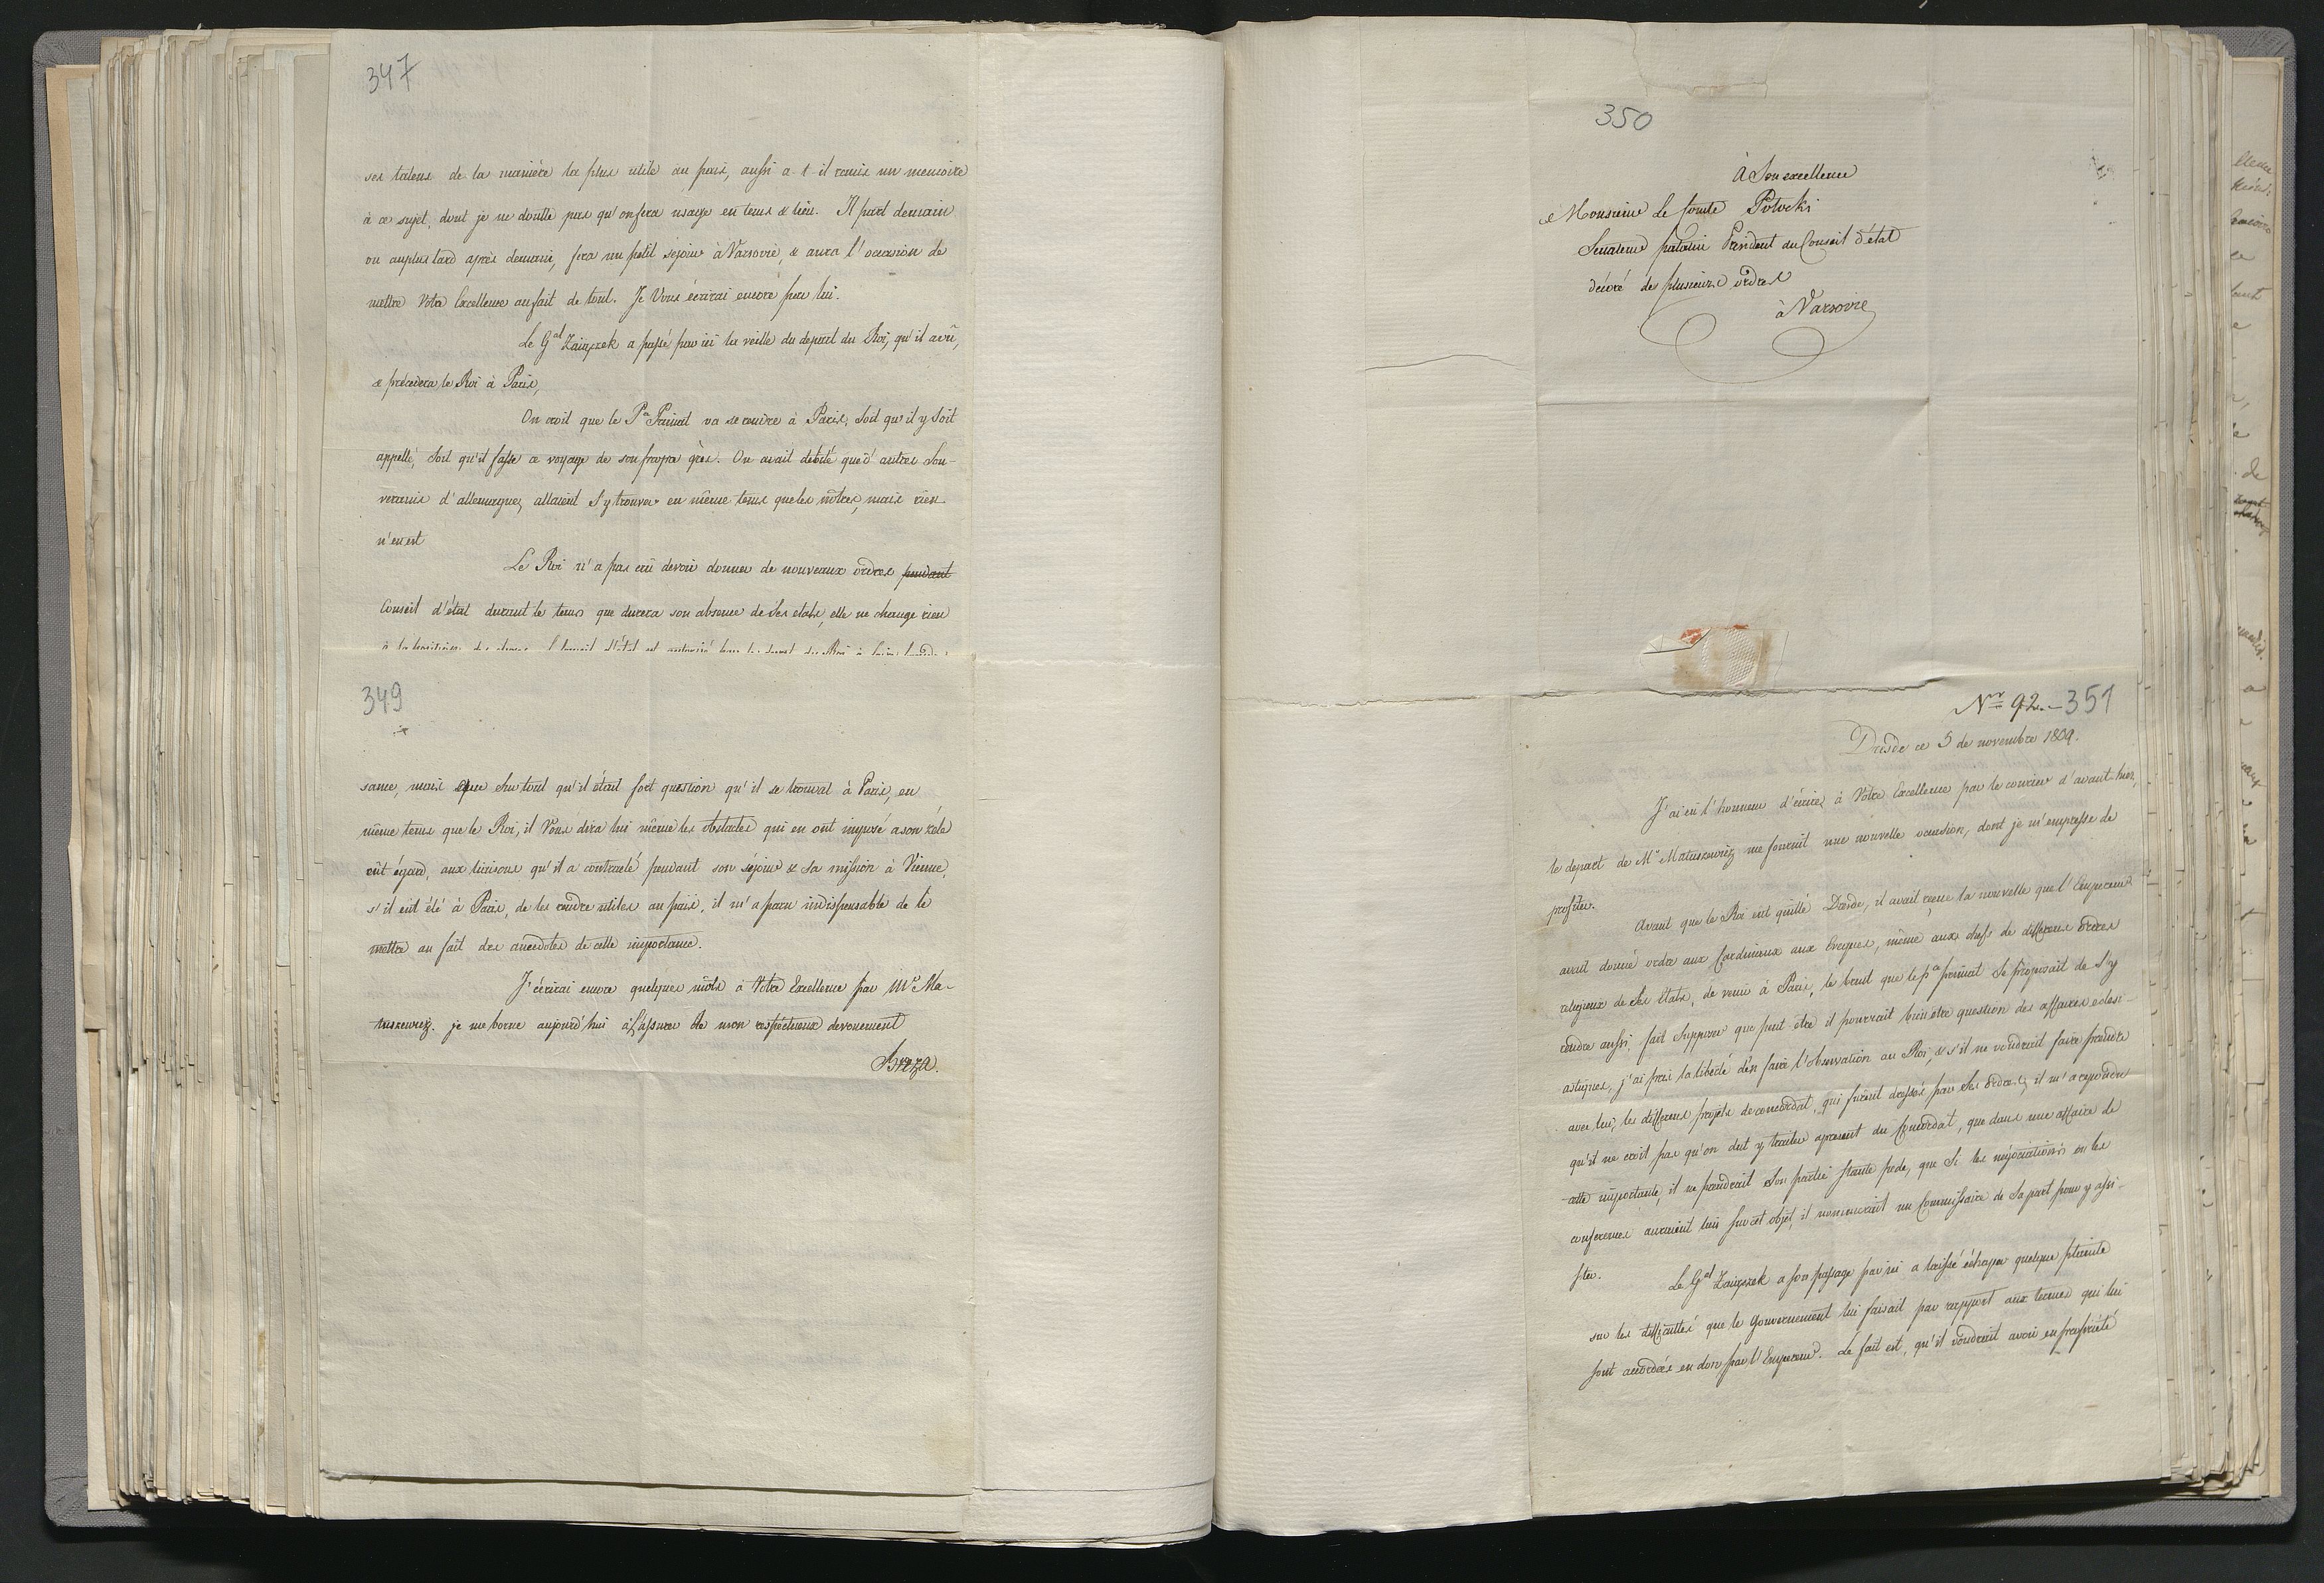 347
ses talens de la manière la plus utile au païs, aussi a-t-il remis un memoire
à ce sujet, dont je ne doutte pas qu'on fera usage en tems & lieu. Il part demain
ou au plus tard après demain, fera un petit séjour à Varsovie, & aura l'occasion de
mettre Votre Excellence au fait de tout. Je Vous écrirai encore par lui.
Le Gal Zaiączek a passé par ici la veille du depart du Roi, qu'il a vû,
& précedera le Roi à Paris,
On croit que le Pce Primat va se rendre à Paris, soit qu'il y soit
appellé, soit qu'il fasse ce voyage de son propre grès. On avait debité que d'autres Sou-
verains d'allemagne, allaient s'y trouver en même tems que les nôtres, mais rien
n'en est
Le Roi n'a pas crû devoir donner de nouveaux ordres pendant
Conseil d'état durant le tems que durera son absence de Ses etats, elle ne change rien
349
sance, mais que surtout qu'il était fort question qu'il se trouvat à Paris, en
même tems que le Roi, il Vous dira lui même les obstacles qui en ont imposé a son zèle
cet égard, aux liaisons qu'il a contracté pendant son séjour & sa mission à Vienne,
s'il eut été à Paris, de les rendre utiles au païs, il m'a paru indispensable de le
mettre au fait des anecdotes de cette importance.
J'écrirai encore quelques mots à Votre Excellence par Mr Ma-
tuszewicz. je me borne aujourd'hui à L'assurer de mon respectueux devouement
Breza.
350
à Son excellence
Monsieur Le Comte Potocki
Senateur palatin President du Conseil d'état
décoré de plusieurs ordres
à Varsovie
Nro 92. 351
Dresde ce 5 de novembre 1809.
J'ai eu l'honneur d'écrire à Votre Excellence par le courier d'avant-hier,
le depart de Mr Matuszewicz me fournit une nouvelle occasion, dont je m'empresse de
profiter.
Avant que le Roi eut quitté Dresde, il avait reçue la nouvelle que l'Empereur
avait donné ordre aux Cardinaux aux Eveques, même aux chefs de differens Ordres
religieux de Ses Etats, de venir à Paris, le bruit que le Pce primat Se proposait de S'y
rendre aussi, fait Supposer que peut être il pourrait bien être question des affaires eclesi-
astiques, j'ai pris la liberté d'en faire l'observation au Roi, & s'il ne voudrait faire prendre
avec lui, les differens projets de concordat, qui furent dressés par Ses Ordres, il m'a repondu
qu'il ne croit pas qu'on dut y traiter apresent du Concordat, que dans une affaire de
cette importance, il ne prendrait Son partie stante pede, que Si les négociations ou les
conferences auraient lieu sur cet objet, il nommerait un Commissaire de Sa part pour y assi-
ster.
Le Gal Zaiączek a son passage par ici a laissé échaper quelque plainte
sur les difficultés que le Gouvernement lui faisait par rapport aux terres qui lui
sont accordées en don par l'Empereur. Le fait est, qu'il voudrait avoir en propriété